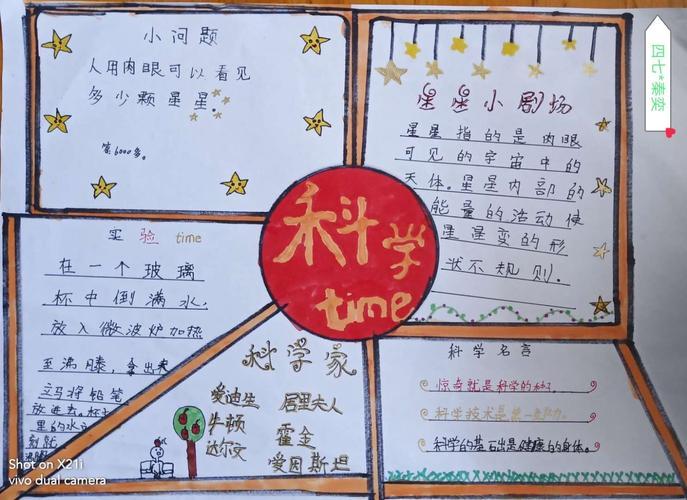 小问题
人用肉眼可以看见
多少颗星星。
答6000多。
星星小剧场
星星指的是肉眼
可见的宇宙中的
天体。星星内部的
能量的活动使
星星变的形
状不规则.
四七*秦奕
科学
time
实验 time
在一个玻璃
杯中倒满水,
放入微波炉加热
至沸腾,拿出来
立马将铅笔
放进去。杯
里的水
刻就
科学家
爱迪生 居里夫人
牛顿 霍金
达尔文 爱因斯坦
科学名言
惊奇就是科学的种子.
科学技术是第一生产力.
科学的基石出是健康的身体。
Shot on X21i
vivo dual camera